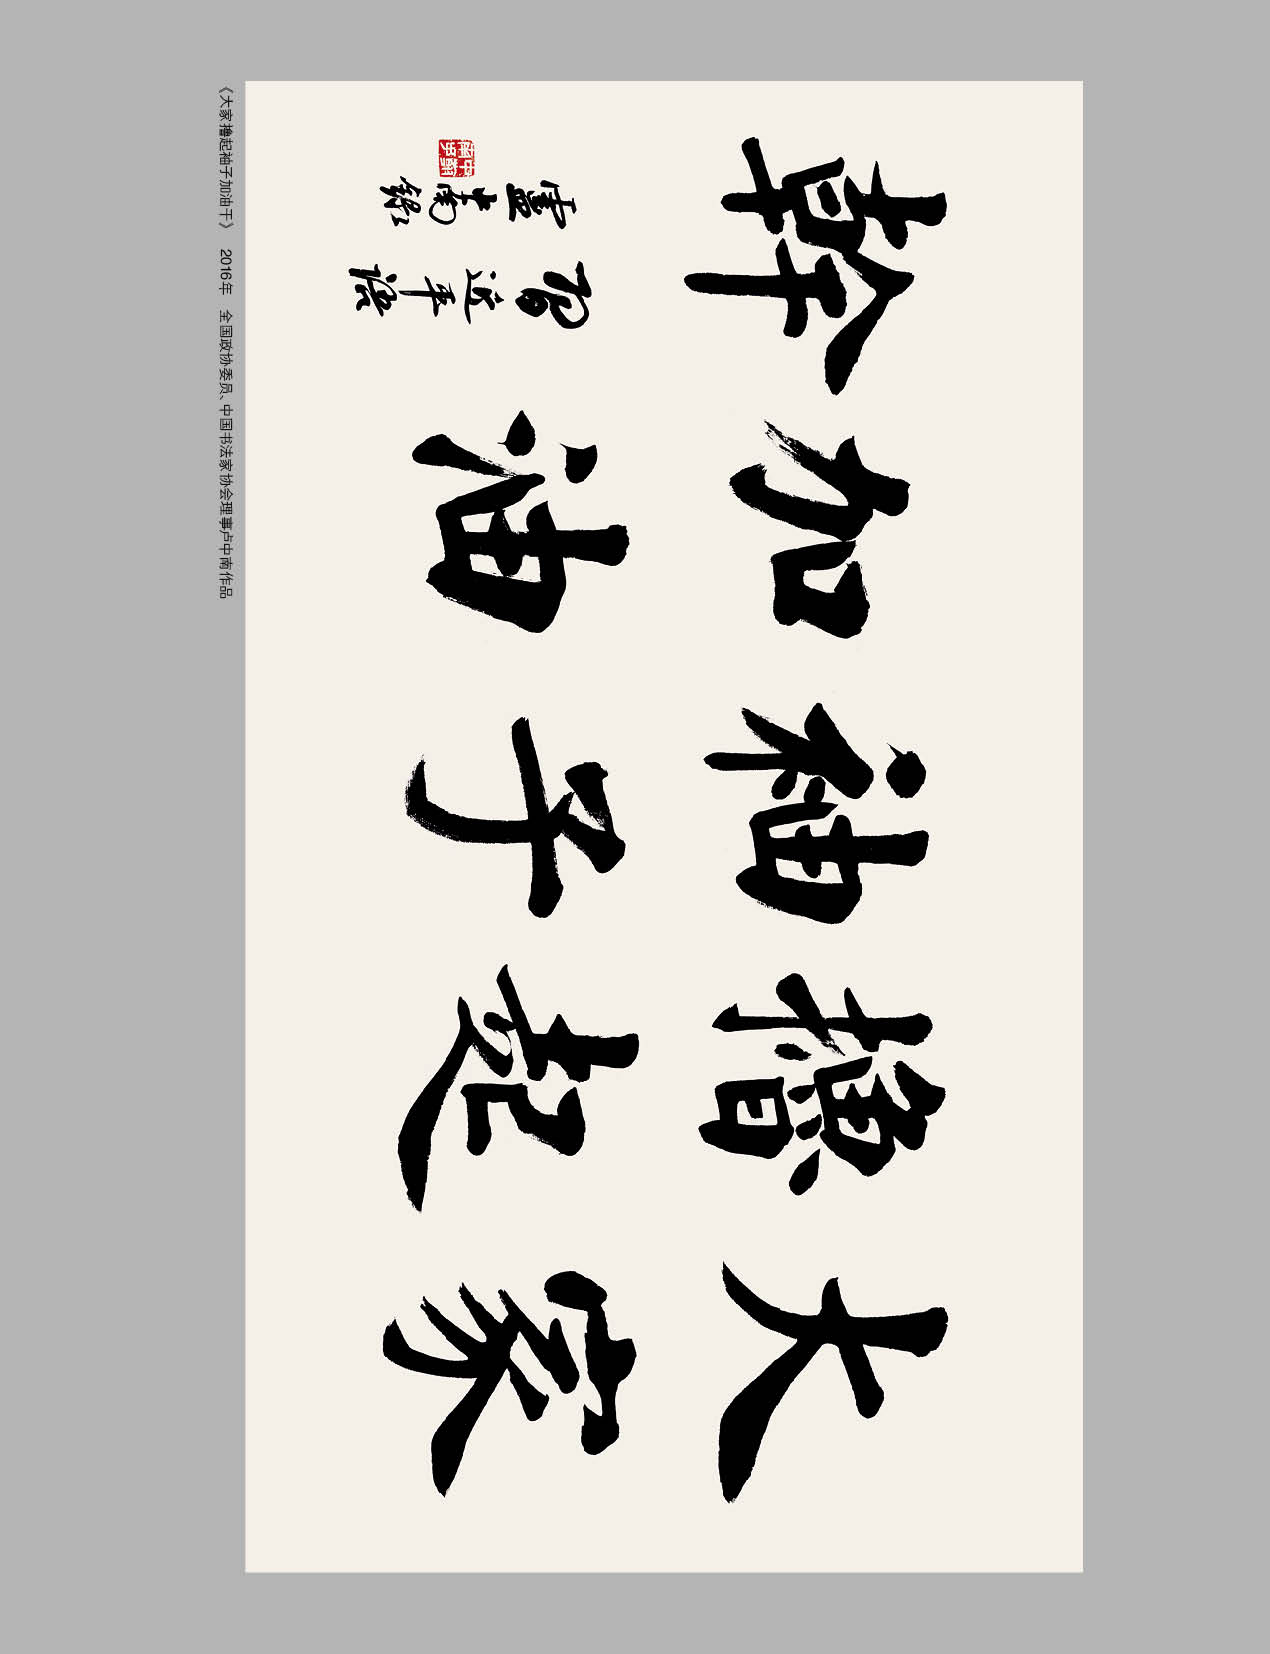 大家
擼起
袖子
加油
幹
習近平語
盧中南錄
《大家撸起袖子加油干》 2016年 全国政协委员、中国书法家协会理事卢中南作品